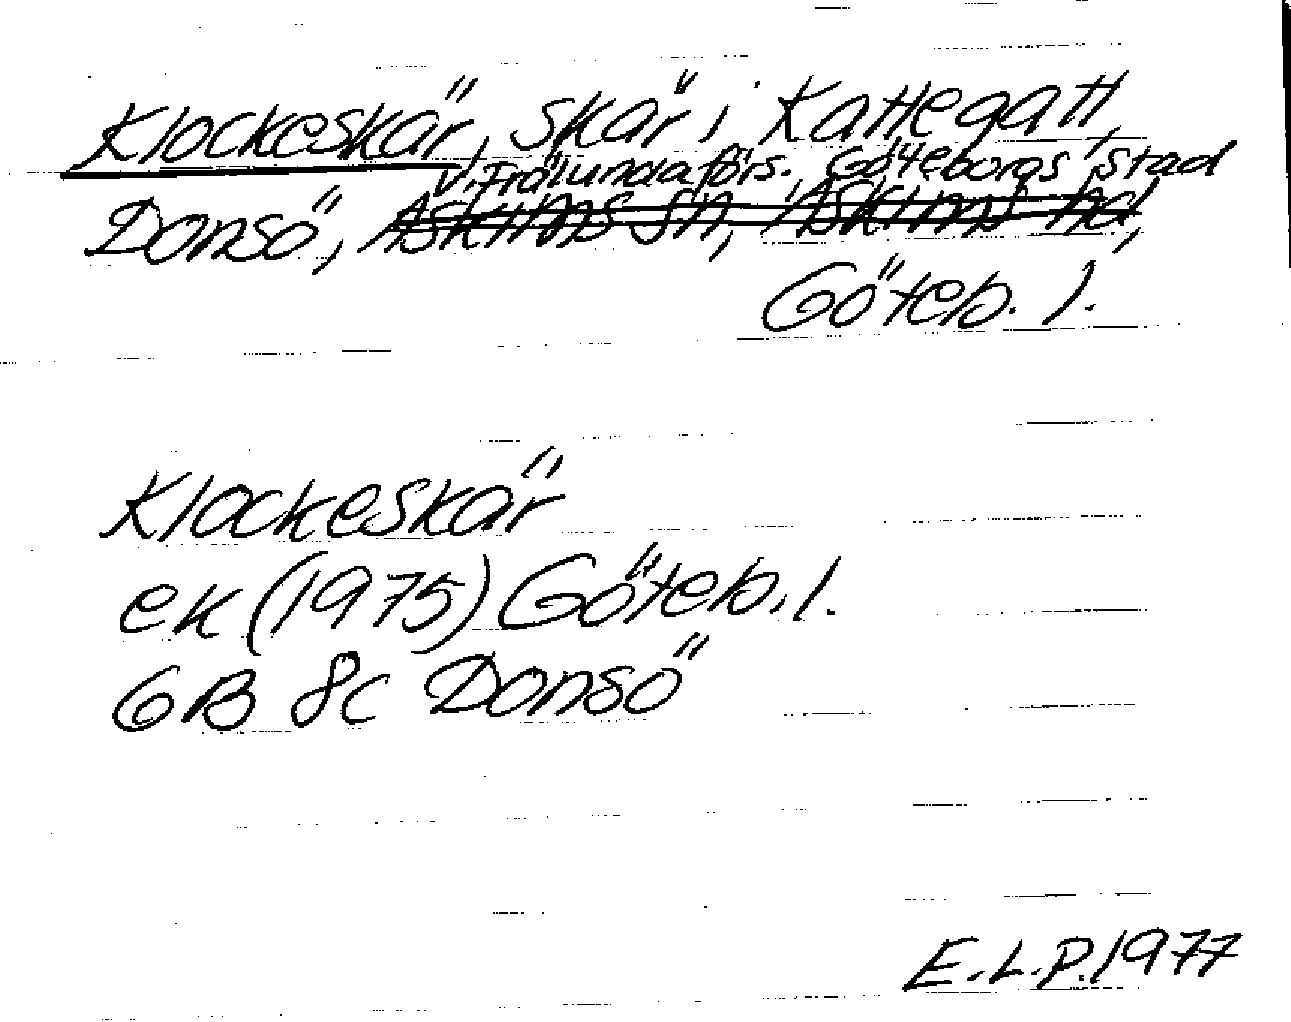 Klockeskär, skär i Kattegatt,
V. Frölunda förs. Göteborgs stad
Donsö, Askims sn, Askims hd,
Göteb. l.
Klockeskär
ek (1975) Göteb. l.
6B 8c Donsö
E.L.P. 1977